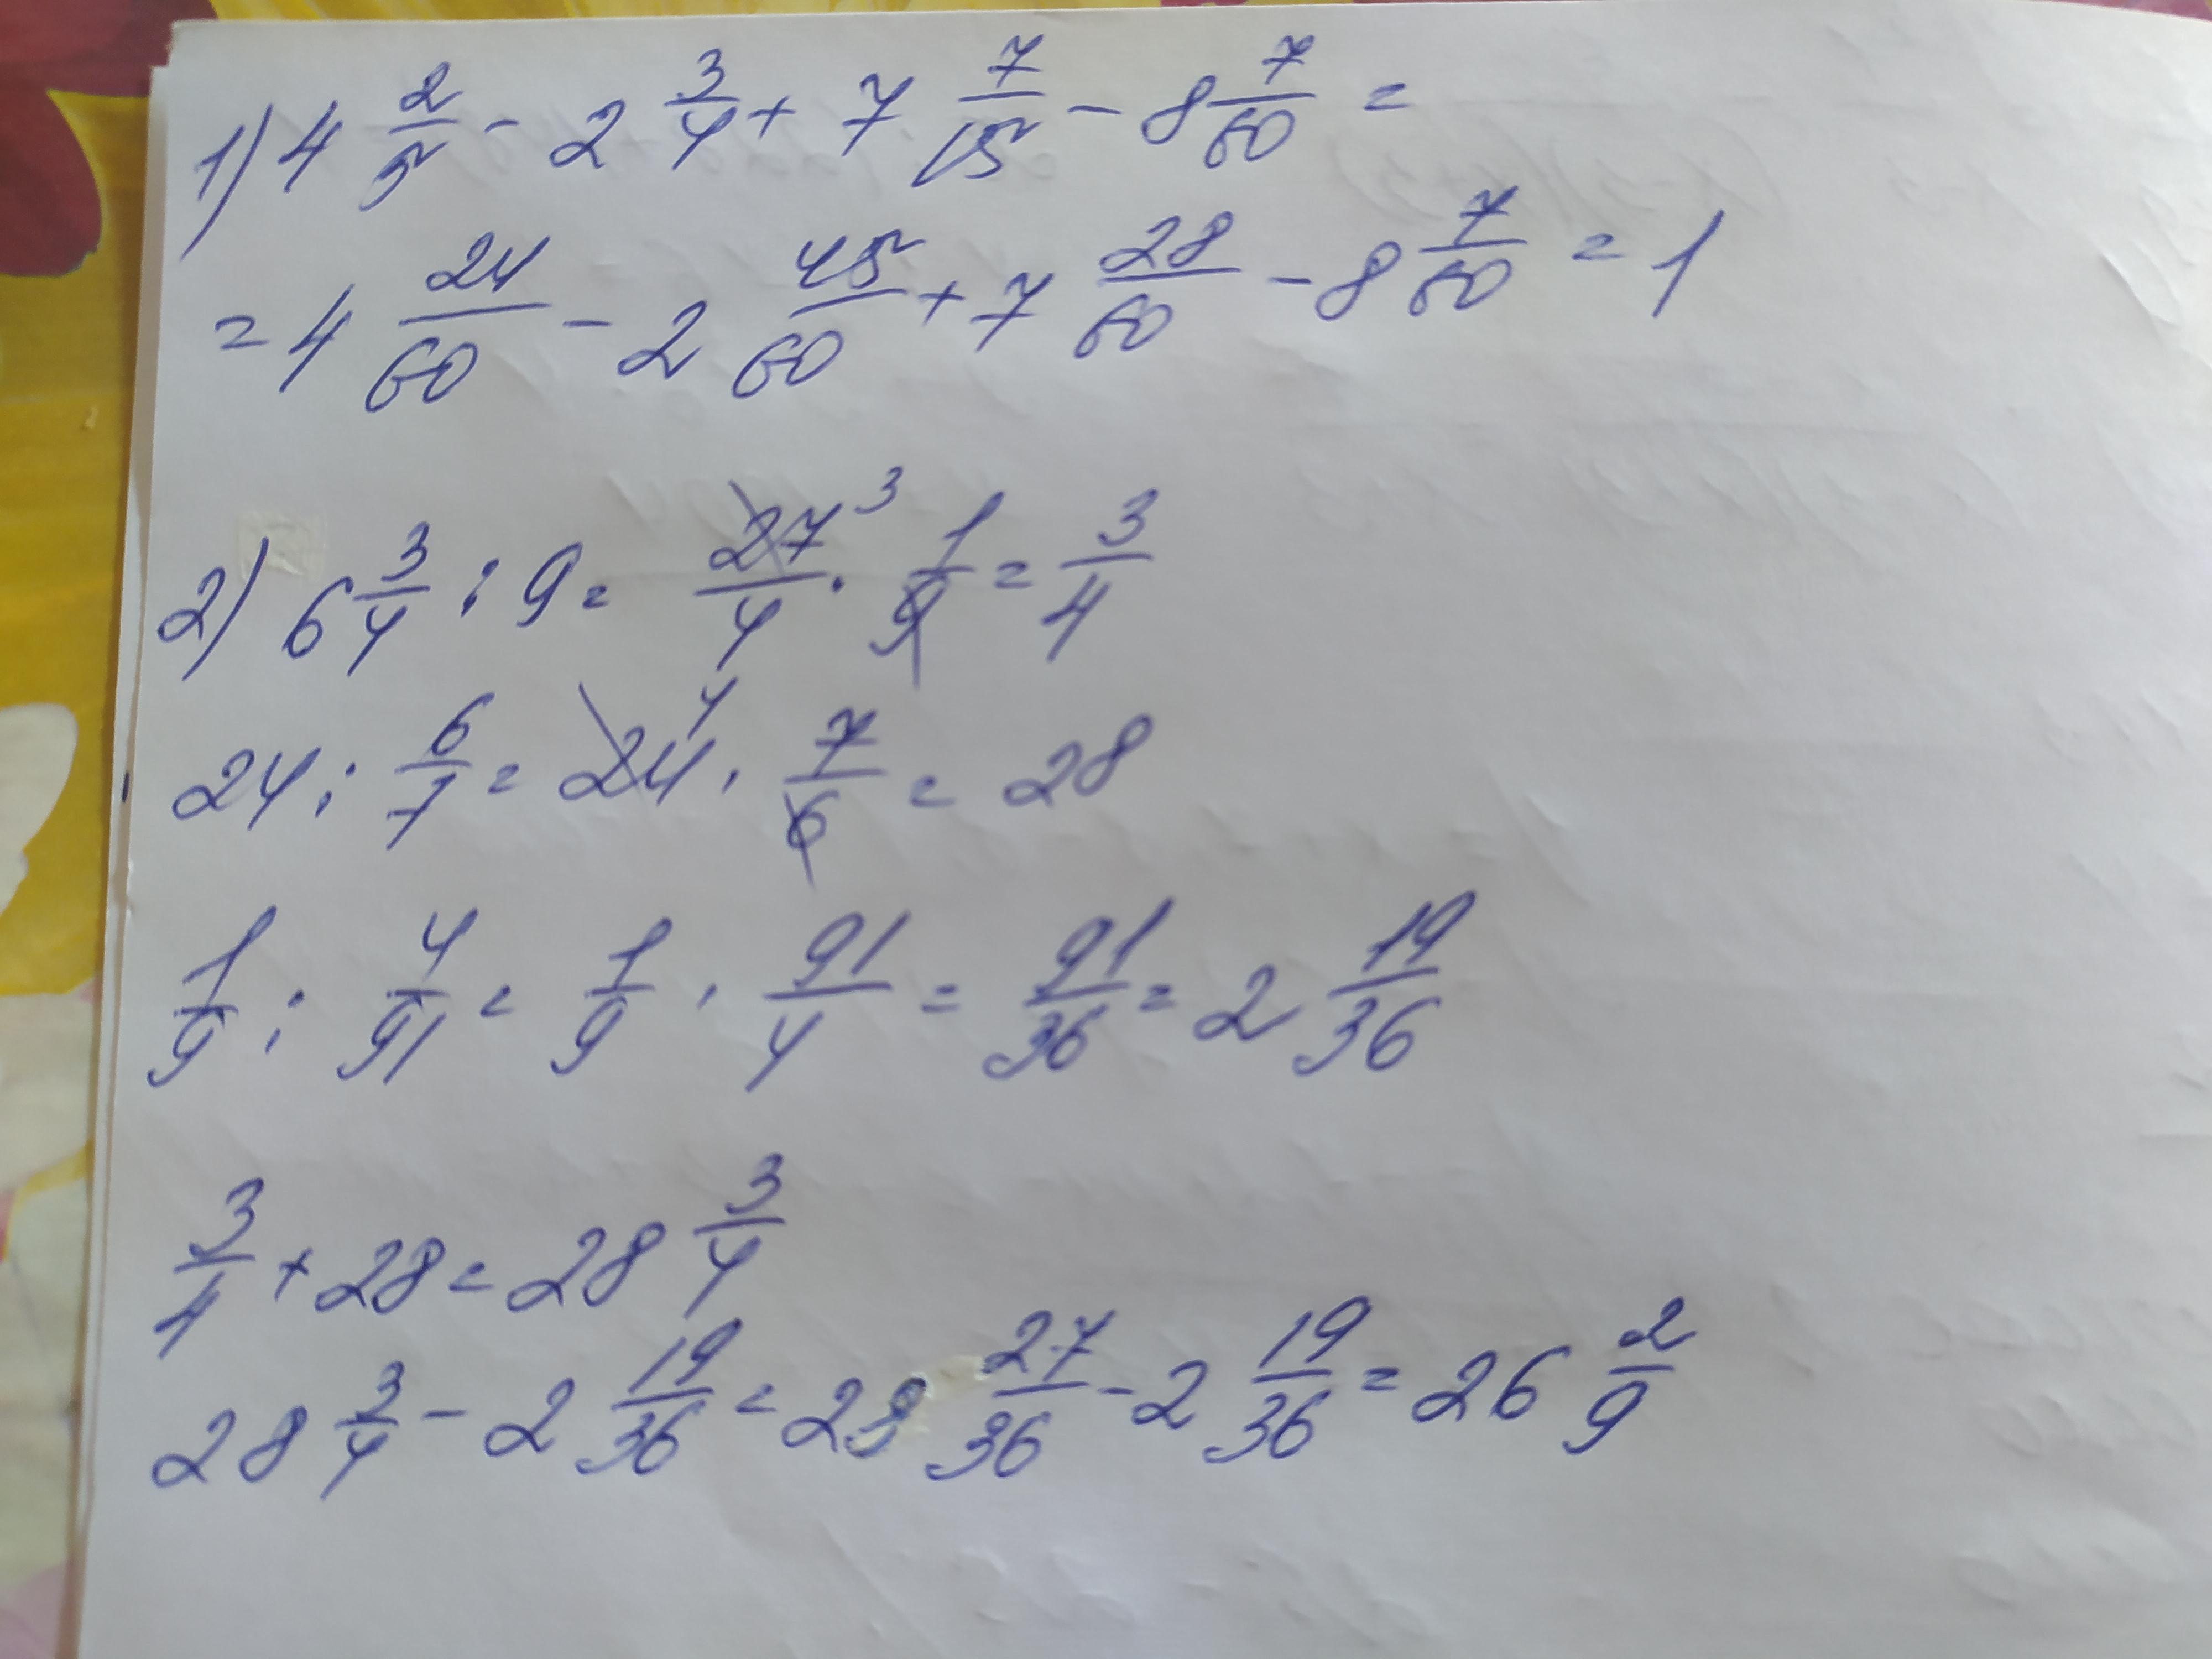 1) 4 2/5 - 2 3/4 + 7 7/15 - 8 7/60 =
= 4 24/60 - 2 45/60 + 7 28/60 - 8 7/60 = 1
2) 6 3/4 : 9 = 27/4 3 · 1/9 = 3/4
24 : 6/7 = 24 4 · 7/6 = 28
1/9 : 4/91 = 1/9 · 91/4 = 91/36 = 2 19/36
3/4 + 28 = 28 3/4
28 3/4 - 2 19/36 = 28 27/36 - 2 19/36 = 26 2/9